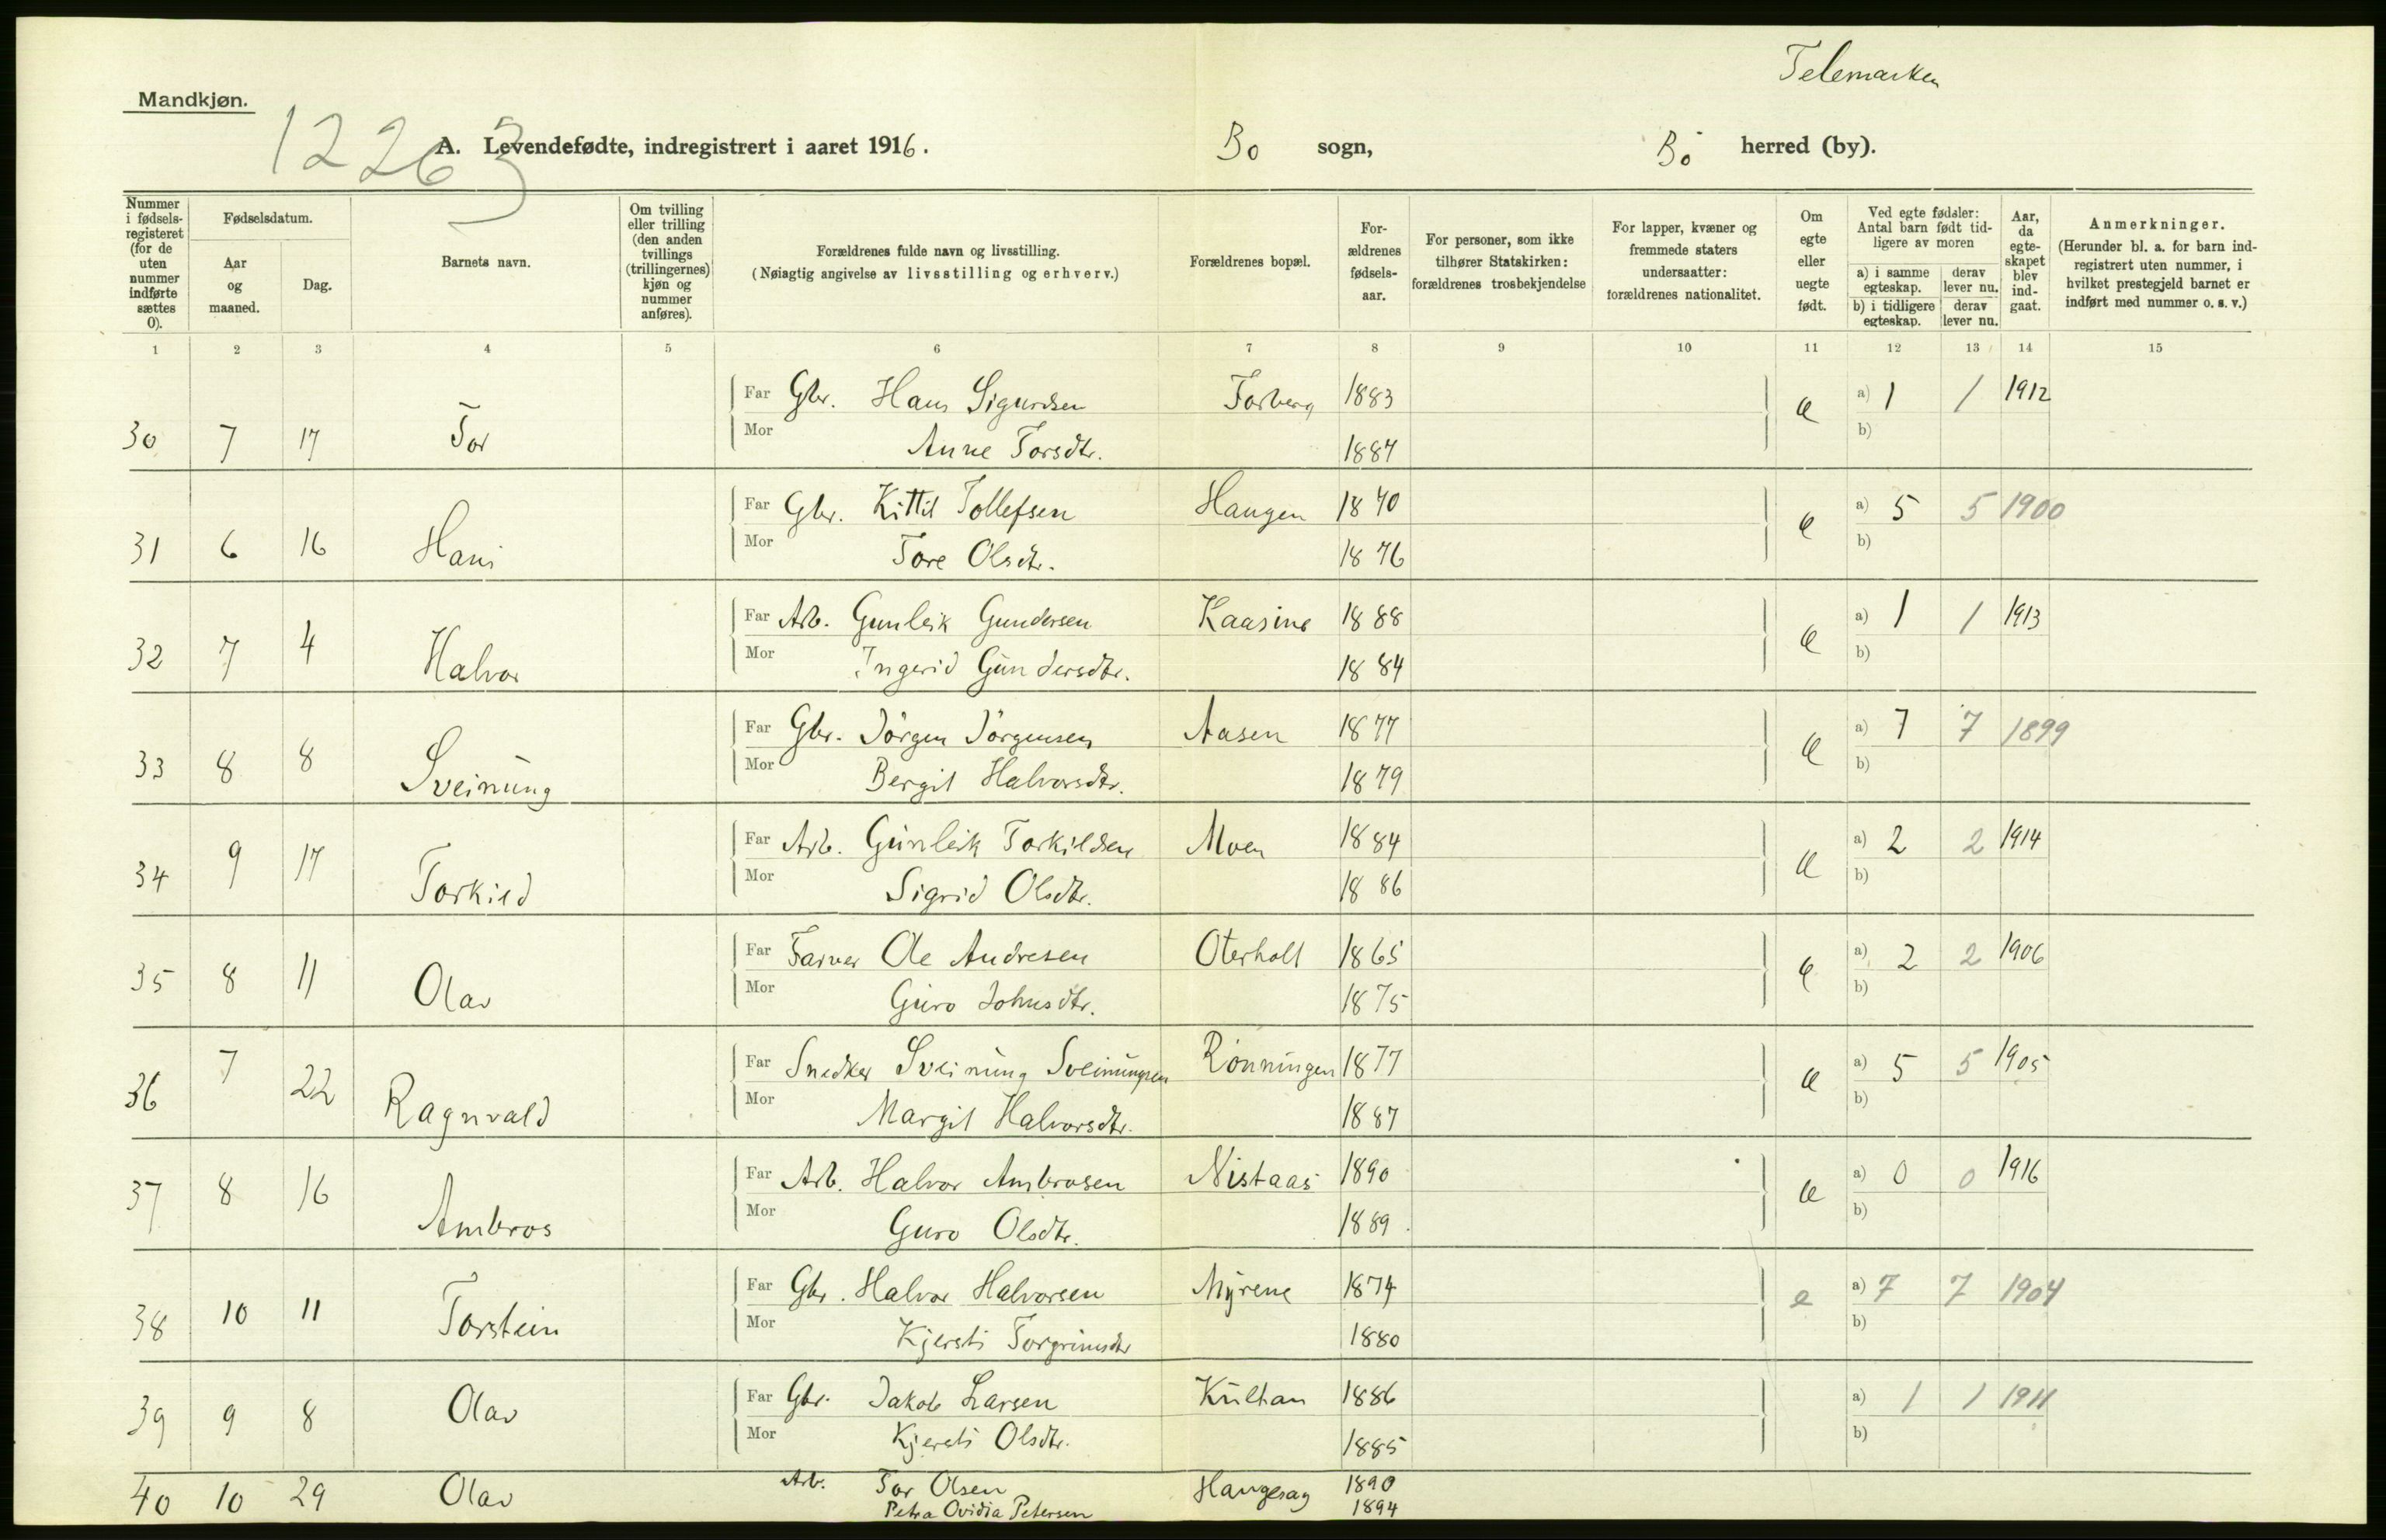 Telemarken
Mandkjøn.
12263
A. Levendefødte, indregistrert i aaret 1916. Bø sogn, Bø herred (by).
Nummer i fødsels-registeret (for de uten nummer indførte sættes 0).
Fødselsdatum.
Aar og maaned.
Dag.
Barnets navn.
Om tvilling eller trilling (den anden tvillings (trillingernes) kjøn og nummer anføres).
Forældrenes fulde navn og livsstilling.
(Nøiagtig angivelse av livsstilling og erhverv.)
Forældrenes bopæl.
For-ældrenes fødsels-aar.
For personer, som ikke tilhører Statskirken: forældrenes trosbekjendelse
For lapper, kvæner og fremmede staters undersaatter: forældrenes nationalitet.
Om egte eller uegte født.
Ved egte fødsler: Antal barn født tid-ligere av moren
a) i samme egteskap. derav lever nu.
b) i tidligere egteskap. derav lever nu.
Aar, da egte-skapet blev ind-gaat.
Anmerkninger.
(Herunder bl. a. for barn ind-registrert uten nummer, i hvilket prestegjeld barnet er indført med nummer o. s. v.)
1 2 3 4 5 6 7 8 9 10 11 12 13 14 15
Far Gbr. Hans Sigurdsen Forberg 1883 e a) 1 1 1912
30 7 17 Tor Mor Anne Torsdtr. 1887 b)
Far Gbr. Kittil Tollefsen Haugen 1870 e a) 5 5 1900
31 6 16 Hans Mor Tore Olsdtr. 1876 b)
Far Arb. Gunleik Gundersen Kaasine 1888 e a) 1 1 1913
32 7 4 Halvor Mor Ingerid Gundersdtr. 1884 b)
Far Gbr. Jörgen Jörgensen Aasen 1877 e a) 7 7 1899
33 8 8 Sveinung Mor Bergit Halvorsdtr. 1879 b)
Far Arb. Gunleik Torkildsen Moen 1884 e a) 2 2 1914
34 9 17 Torkild Mor Sigrid Olsdtr. 1886 b)
Far Farver Ole Andresen Oterholt 1865 e a) 2 2 1906
35 8 11 Olav Mor Guro Johnsdtr. 1875 b)
Far Snedker Sveinung Sveinungsen Rönningen 1877 e a) 5 5 1905
36 7 22 Ragnvald Mor Margit Halvorsdtr. 1887 b)
Far Arb. Halvor Ambrosen Nistaas 1890 e a) 0 0 1916
37 8 16 Ambros Mor Guro Olsdtr. 1889 b)
Far Gbr. Halvor Halvorsen Myrene 1874 e a) 7 7 1904
38 10 11 Torstein Mor Kjersti Torgrimsdtr 1880 b)
Far Gbr. Jakob Larsen Kulhan 1886 a) 1 1 1911
39 9 8 Olav Mor Kjersti Olsdtr. 1885 b)
40 10 29 Olav Arb. Tor Olsen Haugesag 1890
Petra Ovidia Petersen 1894